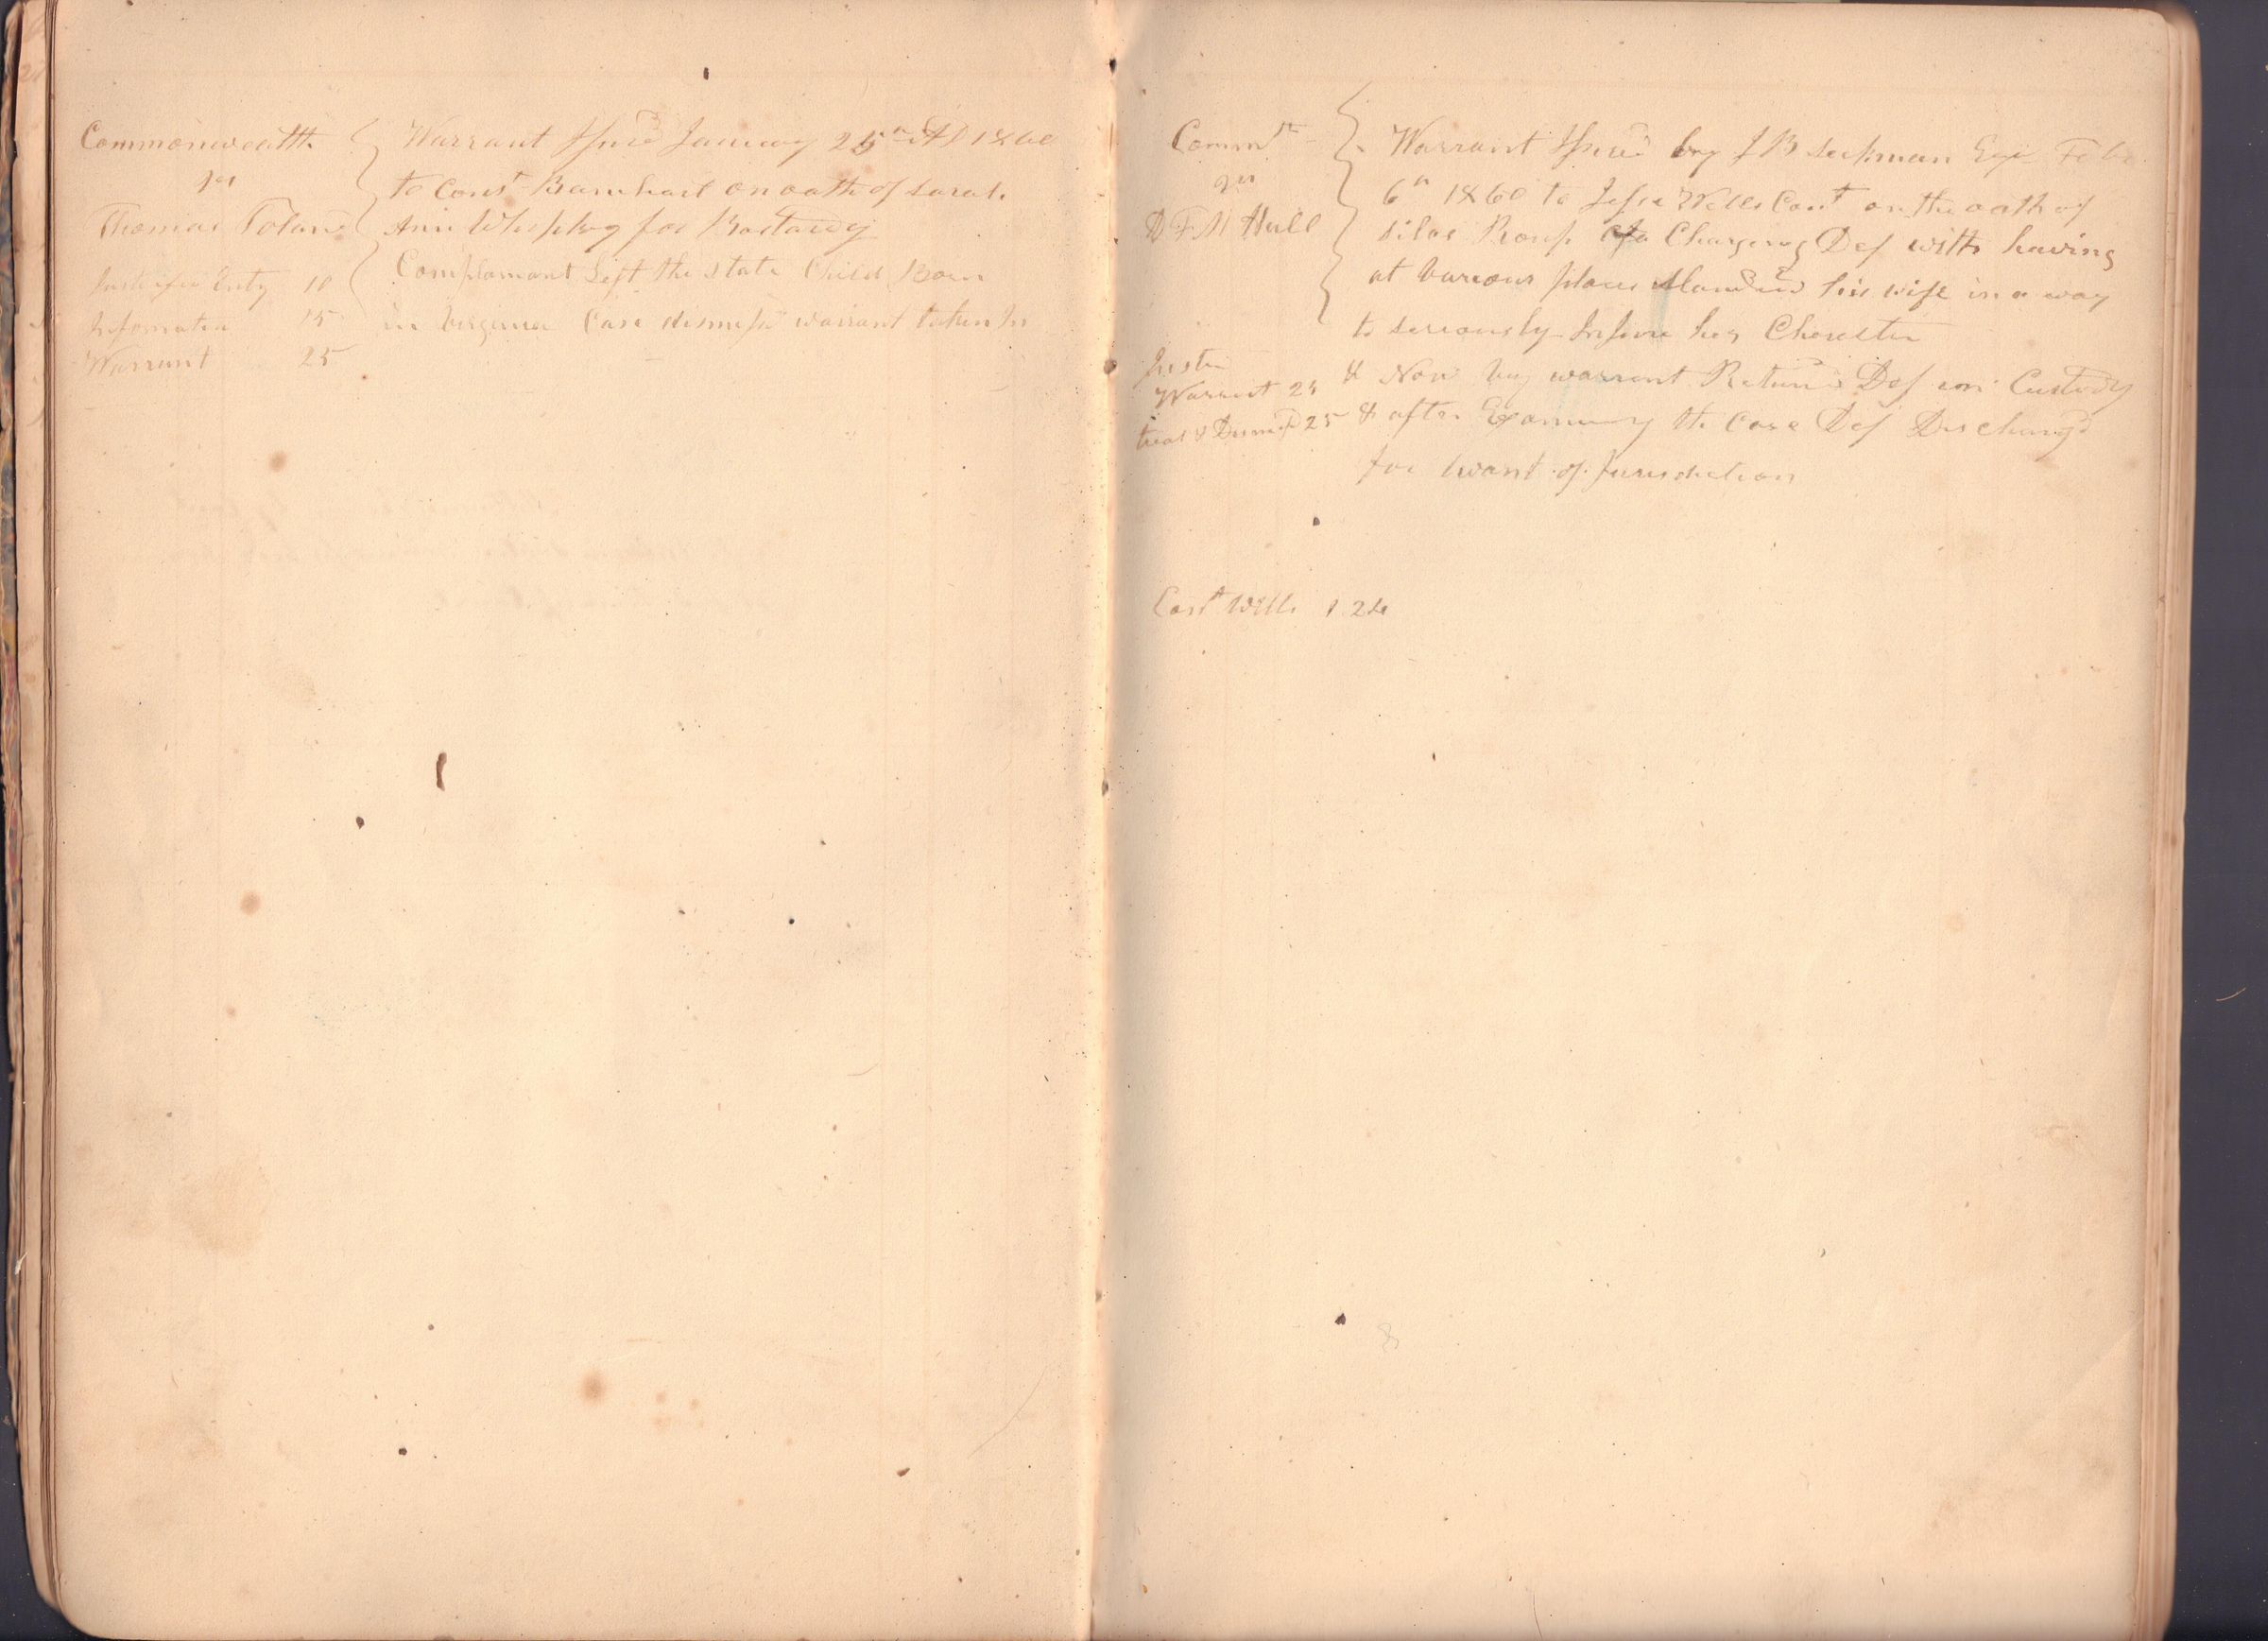 Commonwealth
vs
Thomas Toland
Justice fees Entry 10
Information 15
Warrant 25
Warrant Issued January 25th AD 1860
to Const Barnhart on oath of Sarah
Ann for Bastardy
Complainant Left the state Child Born
in Virginia Case dismissd warrant taken In
Commth
vs
D F M Hull
Justice
Warrant 25
trial & Dismisd 25
Warrant Issued by J B Seckman Esqr Feb
6th 1860 to Jesse Wells Cont on the oath of
Silas Charging Def with having
at Various places Slandered his wife in a way
to seriously Injure her Charecter
& Now warrant Returned Def in Custody
& after Examining the Case Def Dischargd
for want of Jurisdiction
Cost Wells 1 24